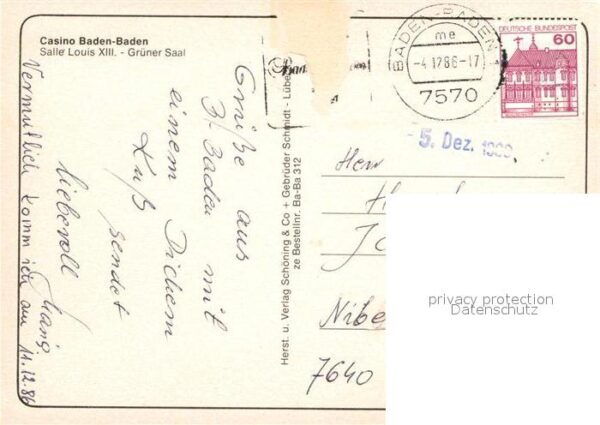 Casino Baden-Baden
Salle Louis XIII. - Grüner Saal
Grüße aus
B. Baden mit
einem Dickem
Kuß sendet
liebevoll
Vermutlich komm ich am 11.12.86
Herst. u. Verlag Schöning & Co + Gebrüder Schmidt - Lübe
ze Bestellnr. Ba-Ba 312
BADEN-BADEN 1
me
-4.12.86-17
7570
DEUTSCHE BUNDESPOST
60
- 5. Dez. 1986
Herrn
H
Nibe
7640
privacy protection
Datenschutz